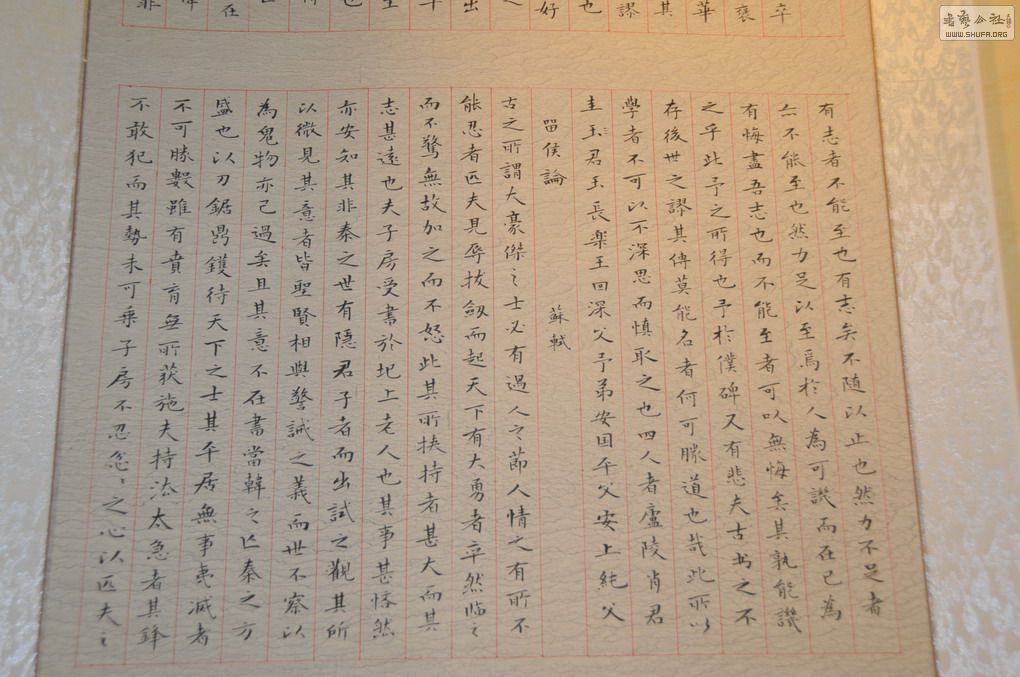 卒
褒
華
其
謬
也
好
出
在
非
有志者不能至也有志矣不随以止也然力不足者
亦不能至也然力足以至焉於人為可譏而在己為
有悔盡吾志也而不能至者可以無悔矣其孰能譏
之乎此予之所得也予於僕碑又有悲夫古书之不
存後世之謬其傳莫能名者何可勝道也哉此所以
學者不可以不深思而慎取之也四人者廬陵肖君
圭玉君玉長楽王回深父予弟安国平父安上純父
留侯論 蘇軾
古之所謂大豪傑之士必有過人之節人情之有所不
能忍者匹夫見辱拔劔而起天下有大勇者卒然臨之
而不驚無故加之而不怒此其所挟持者甚大而其
志甚遠也夫子房受書於圯上老人也其事甚恠然
亦安知其非秦之世有隱君子者而出試之觀其所
以微見其意者皆聖賢相與警誡之義而世不察以
為鬼物亦已過矣且其意不在書當韓之亡秦之方
盛也以刀鋸鼎鑊待天下之士其平居無事夷滅者
不可勝數雖有賁育無所获施夫持法太急者其鋒
不敢犯而其勢未可乗子房不忍忿〻之心以匹夫之
书艺公社
WWW.SHUFA.ORG